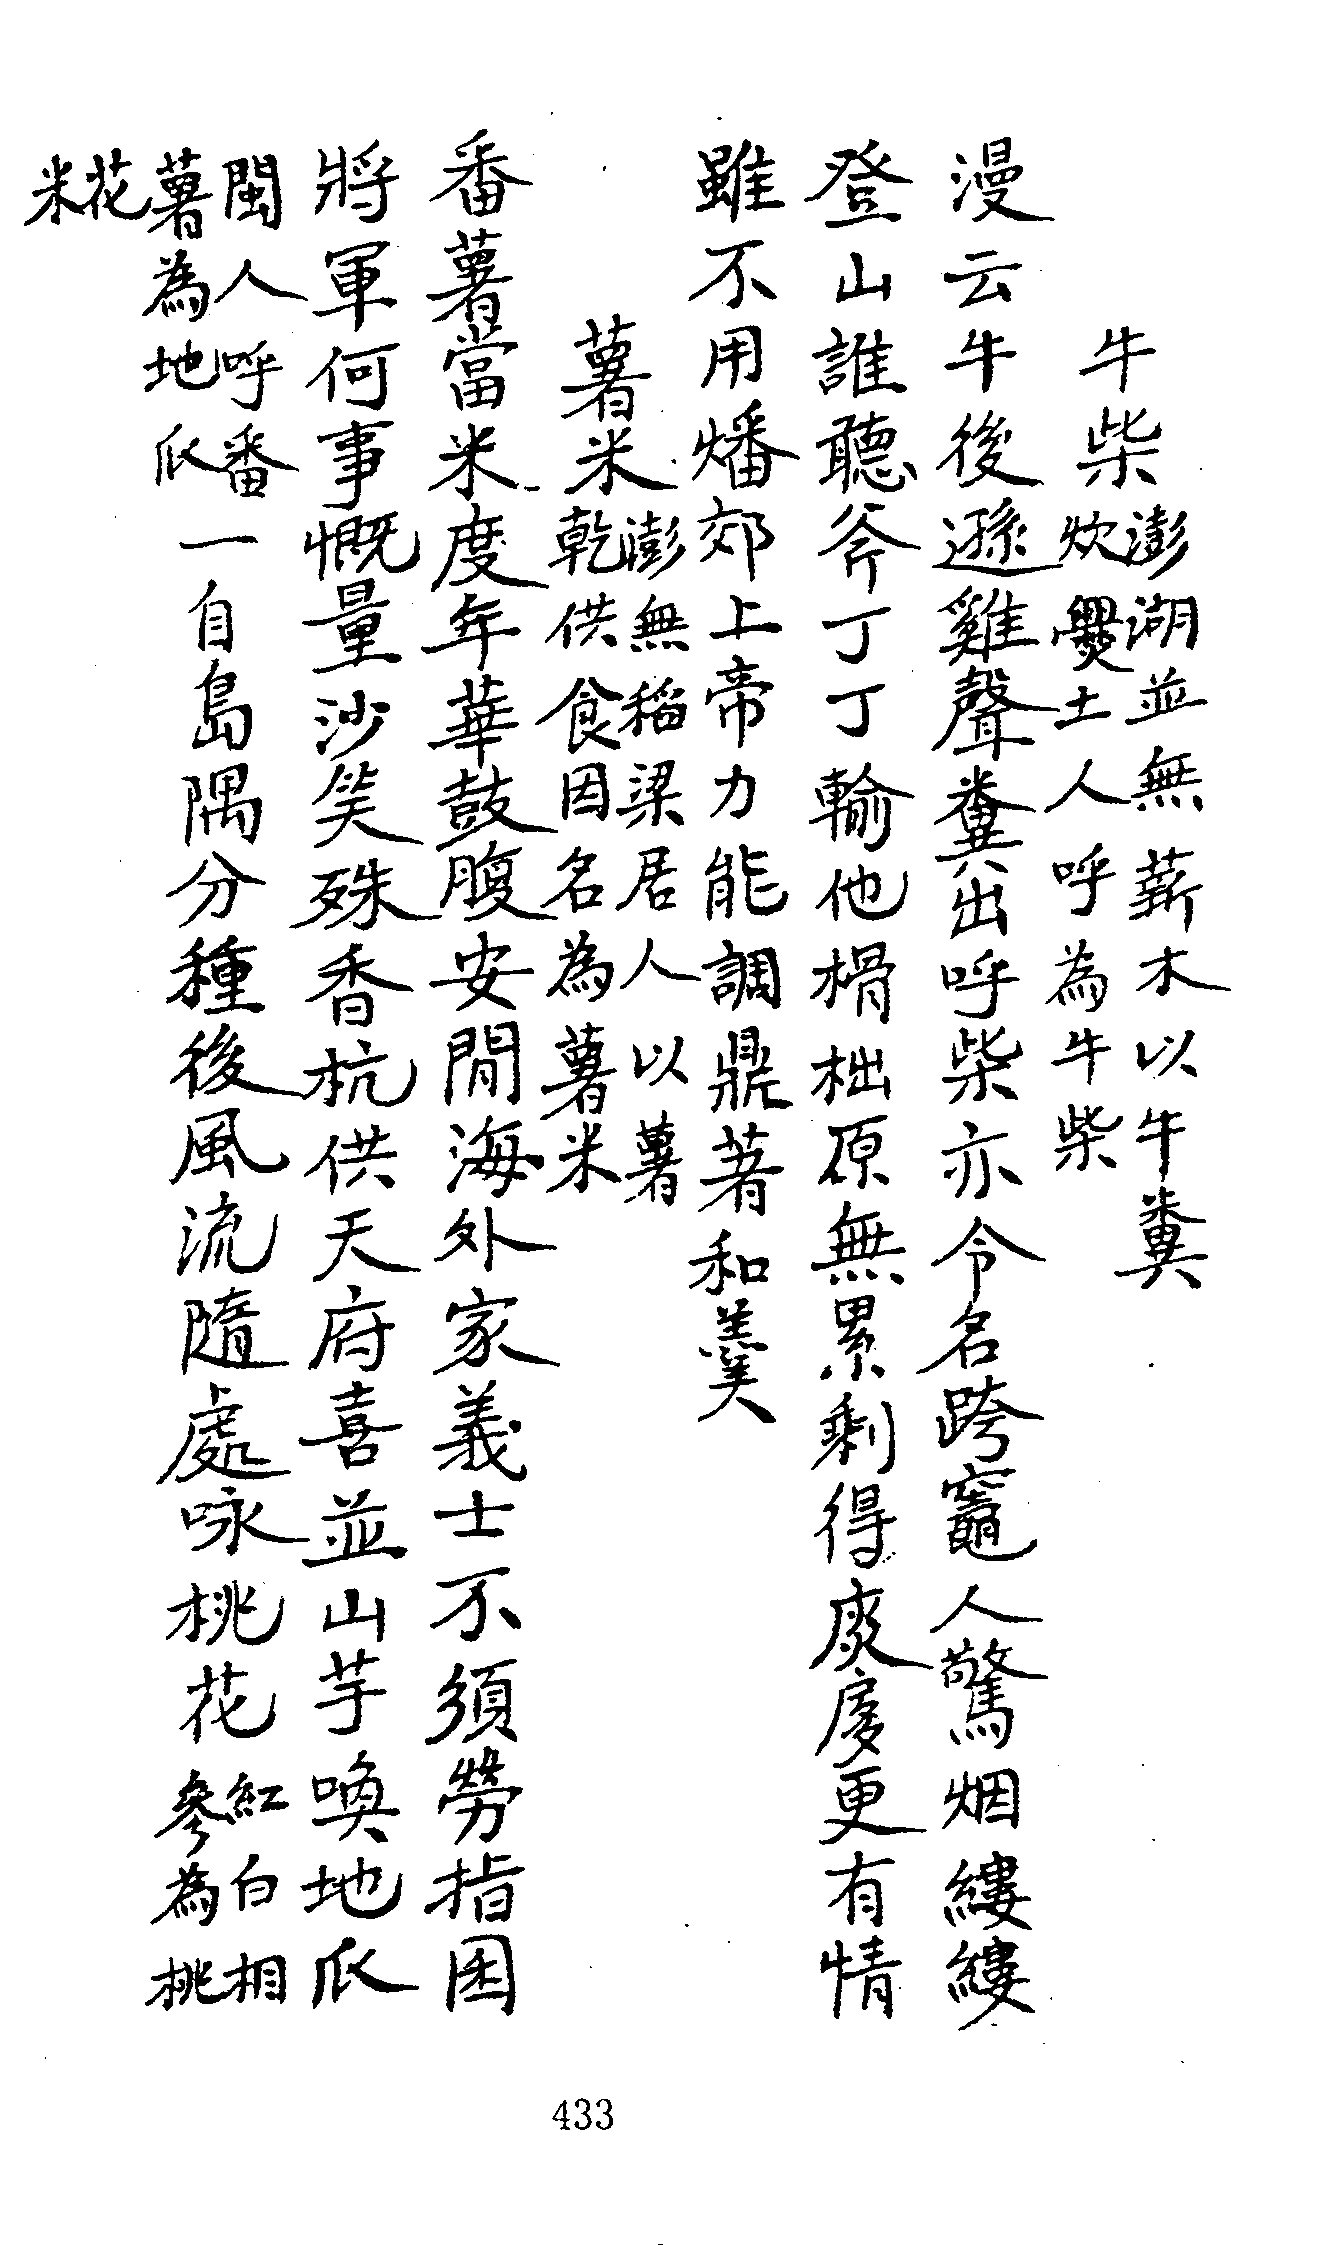 牛柴
澎湖並無薪木以牛糞
炊爨土人呼為牛柴
漫云牛後遜雞聲糞出呼柴亦令名跨竈人驚烟縷縷
登山誰聽斧丁丁輸他榾柮原無累剩得扊扅更有情
雖不用燔郊上帝力能調鼎著和羹
薯米
澎無稻梁居人以薯
乾供食因名為薯米
番薯當米度年華鼓腹安閒海外家義士不須勞指囷
將軍何事慨量沙笑殊香杭供天府喜並山芋喚地瓜
閩人呼番
薯為地瓜
一自島隅分種後風流隨處咏桃花
紅白相
參為桃
花
米
433